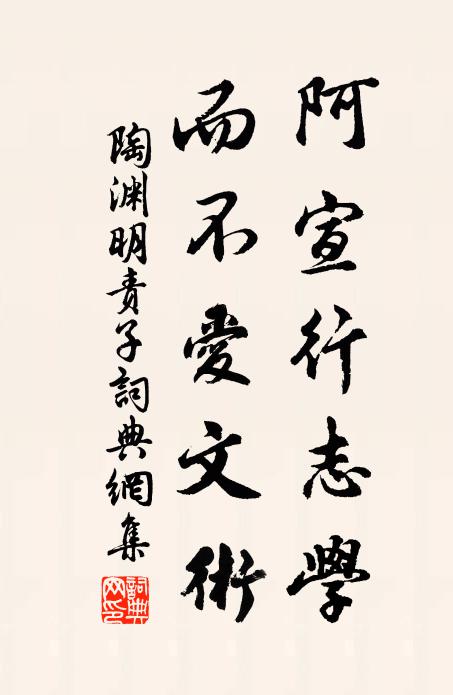 阿宣行志學
而不愛文術
陶淵明責子詞典網集
詞典網印